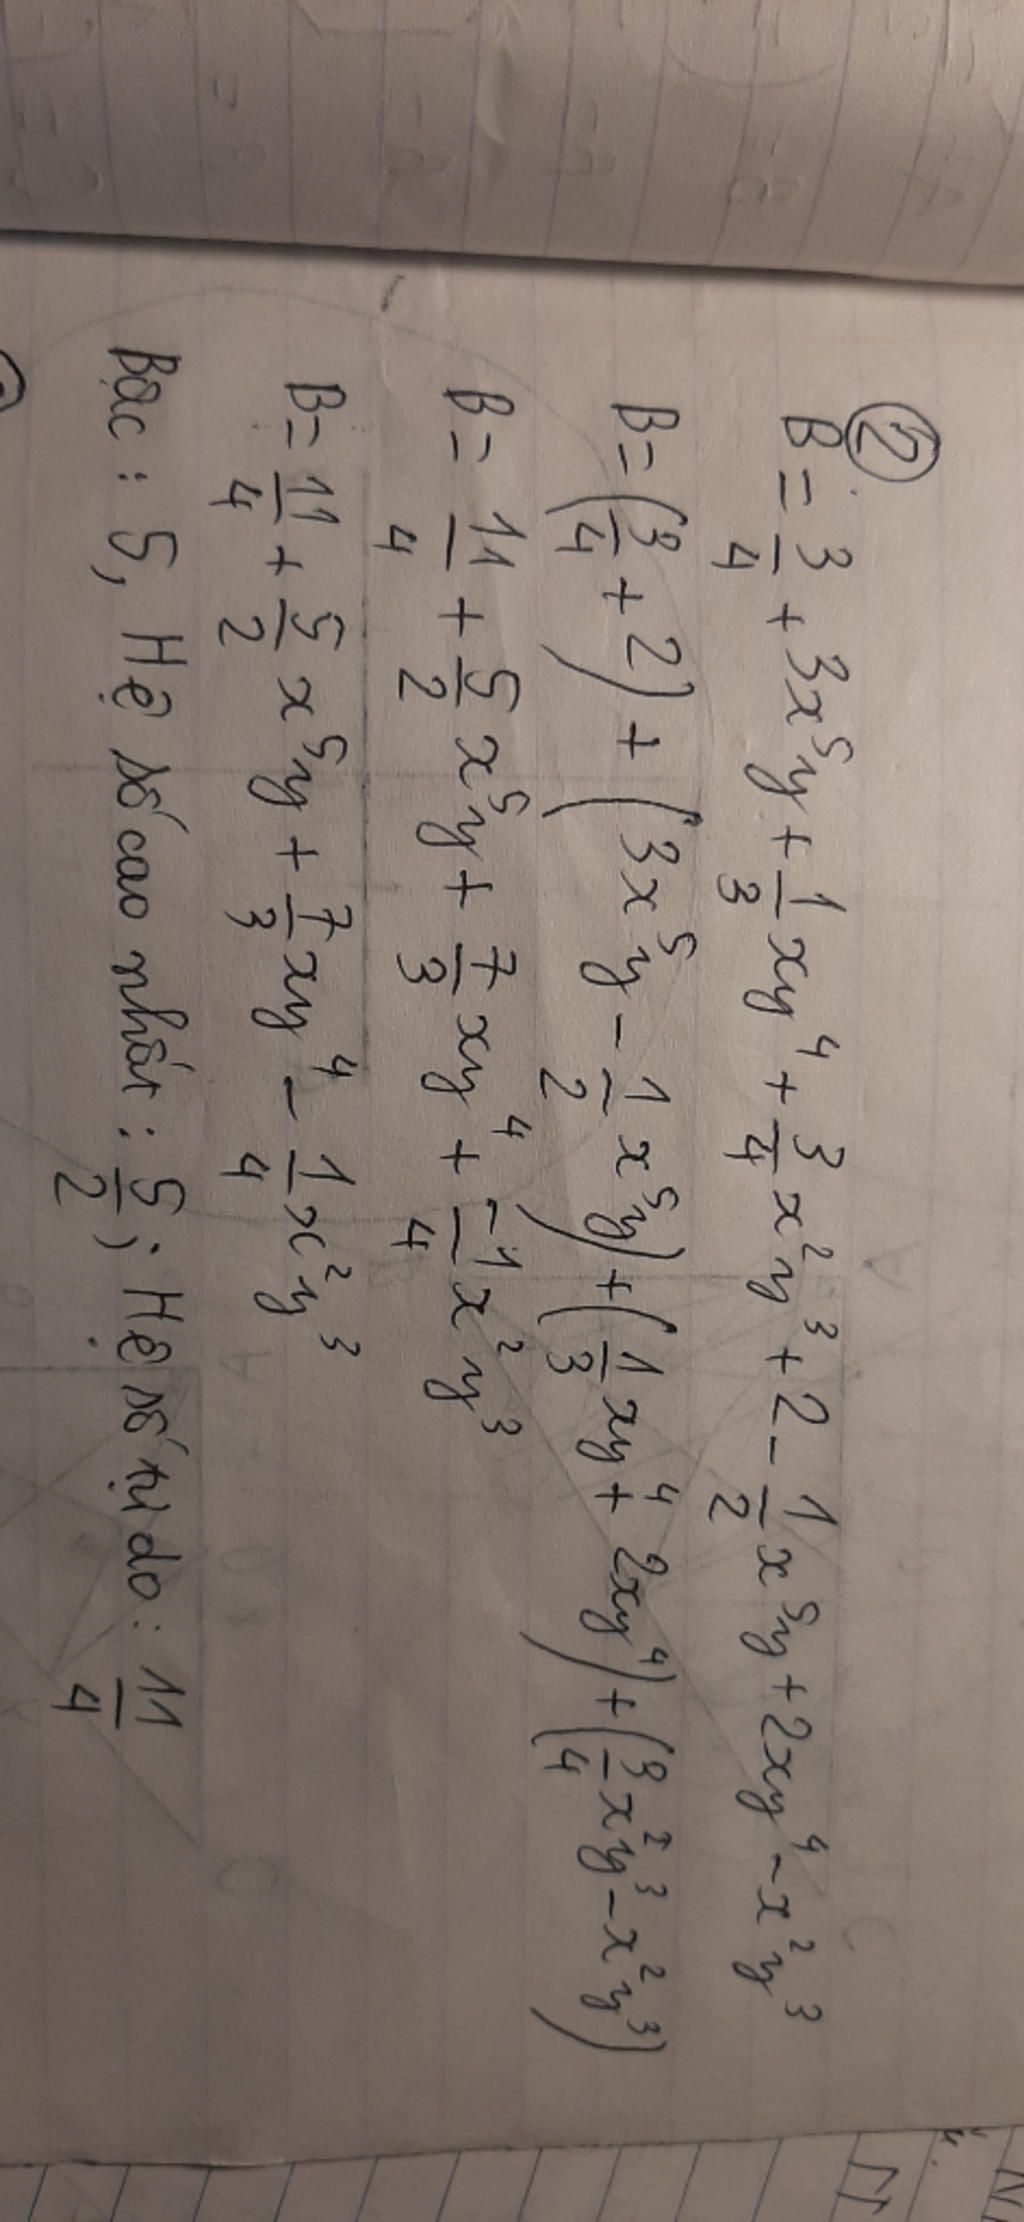 ②
B = 3/4 + 3x⁵y + 1/3 xy⁴ + 3/4 x²y³ + 2 - 1/2 x⁵y + 2xy⁴ - x²y³
B = (3/4 + 2) + (3x⁵y - 1/2 x⁵y) + (1/3 xy⁴ + 2xy⁴) + (3/4 x²y³ - x²y³)
B = 11/4 + 5/2 x⁵y + 7/3 xy⁴ + -1/4 x²y³
B = 11/4 + 5/2 x⁵y + 7/3 xy⁴ - 1/4 x²y³
Bậc : 5, Hệ số cao nhất : 5/2 ; Hệ số tự do : 11/4